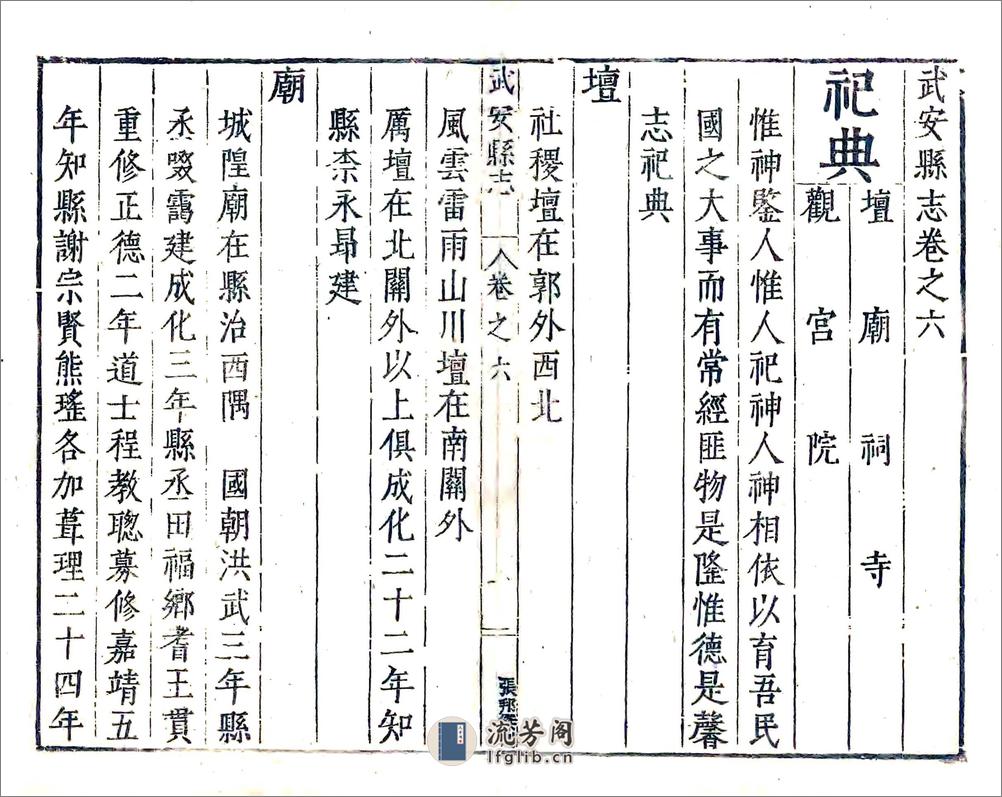 武安縣志卷之六
祀典
壇 廟 祠 寺
觀 宮 院
惟神鑒人惟人祀神人神相依以育吾民
國之大事而有常經匪物是隆惟德是馨
志祀典
壇
社稷壇在郭外西北
風雲雷雨山川壇在南關外
厲壇在北關外以上俱成化二十二年知
縣柰永昻建
廟
城隍廟在縣治西隅 國朝洪武三年縣
丞啜靄建成化三年縣丞田福鄉耆王貫
重修正德二年道士程教聰募修嘉靖五
年知縣謝宗賢熊瑤各加葺理二十四年
武安縣志 卷之六 一
張邦
流芳阁
lfglib.cn